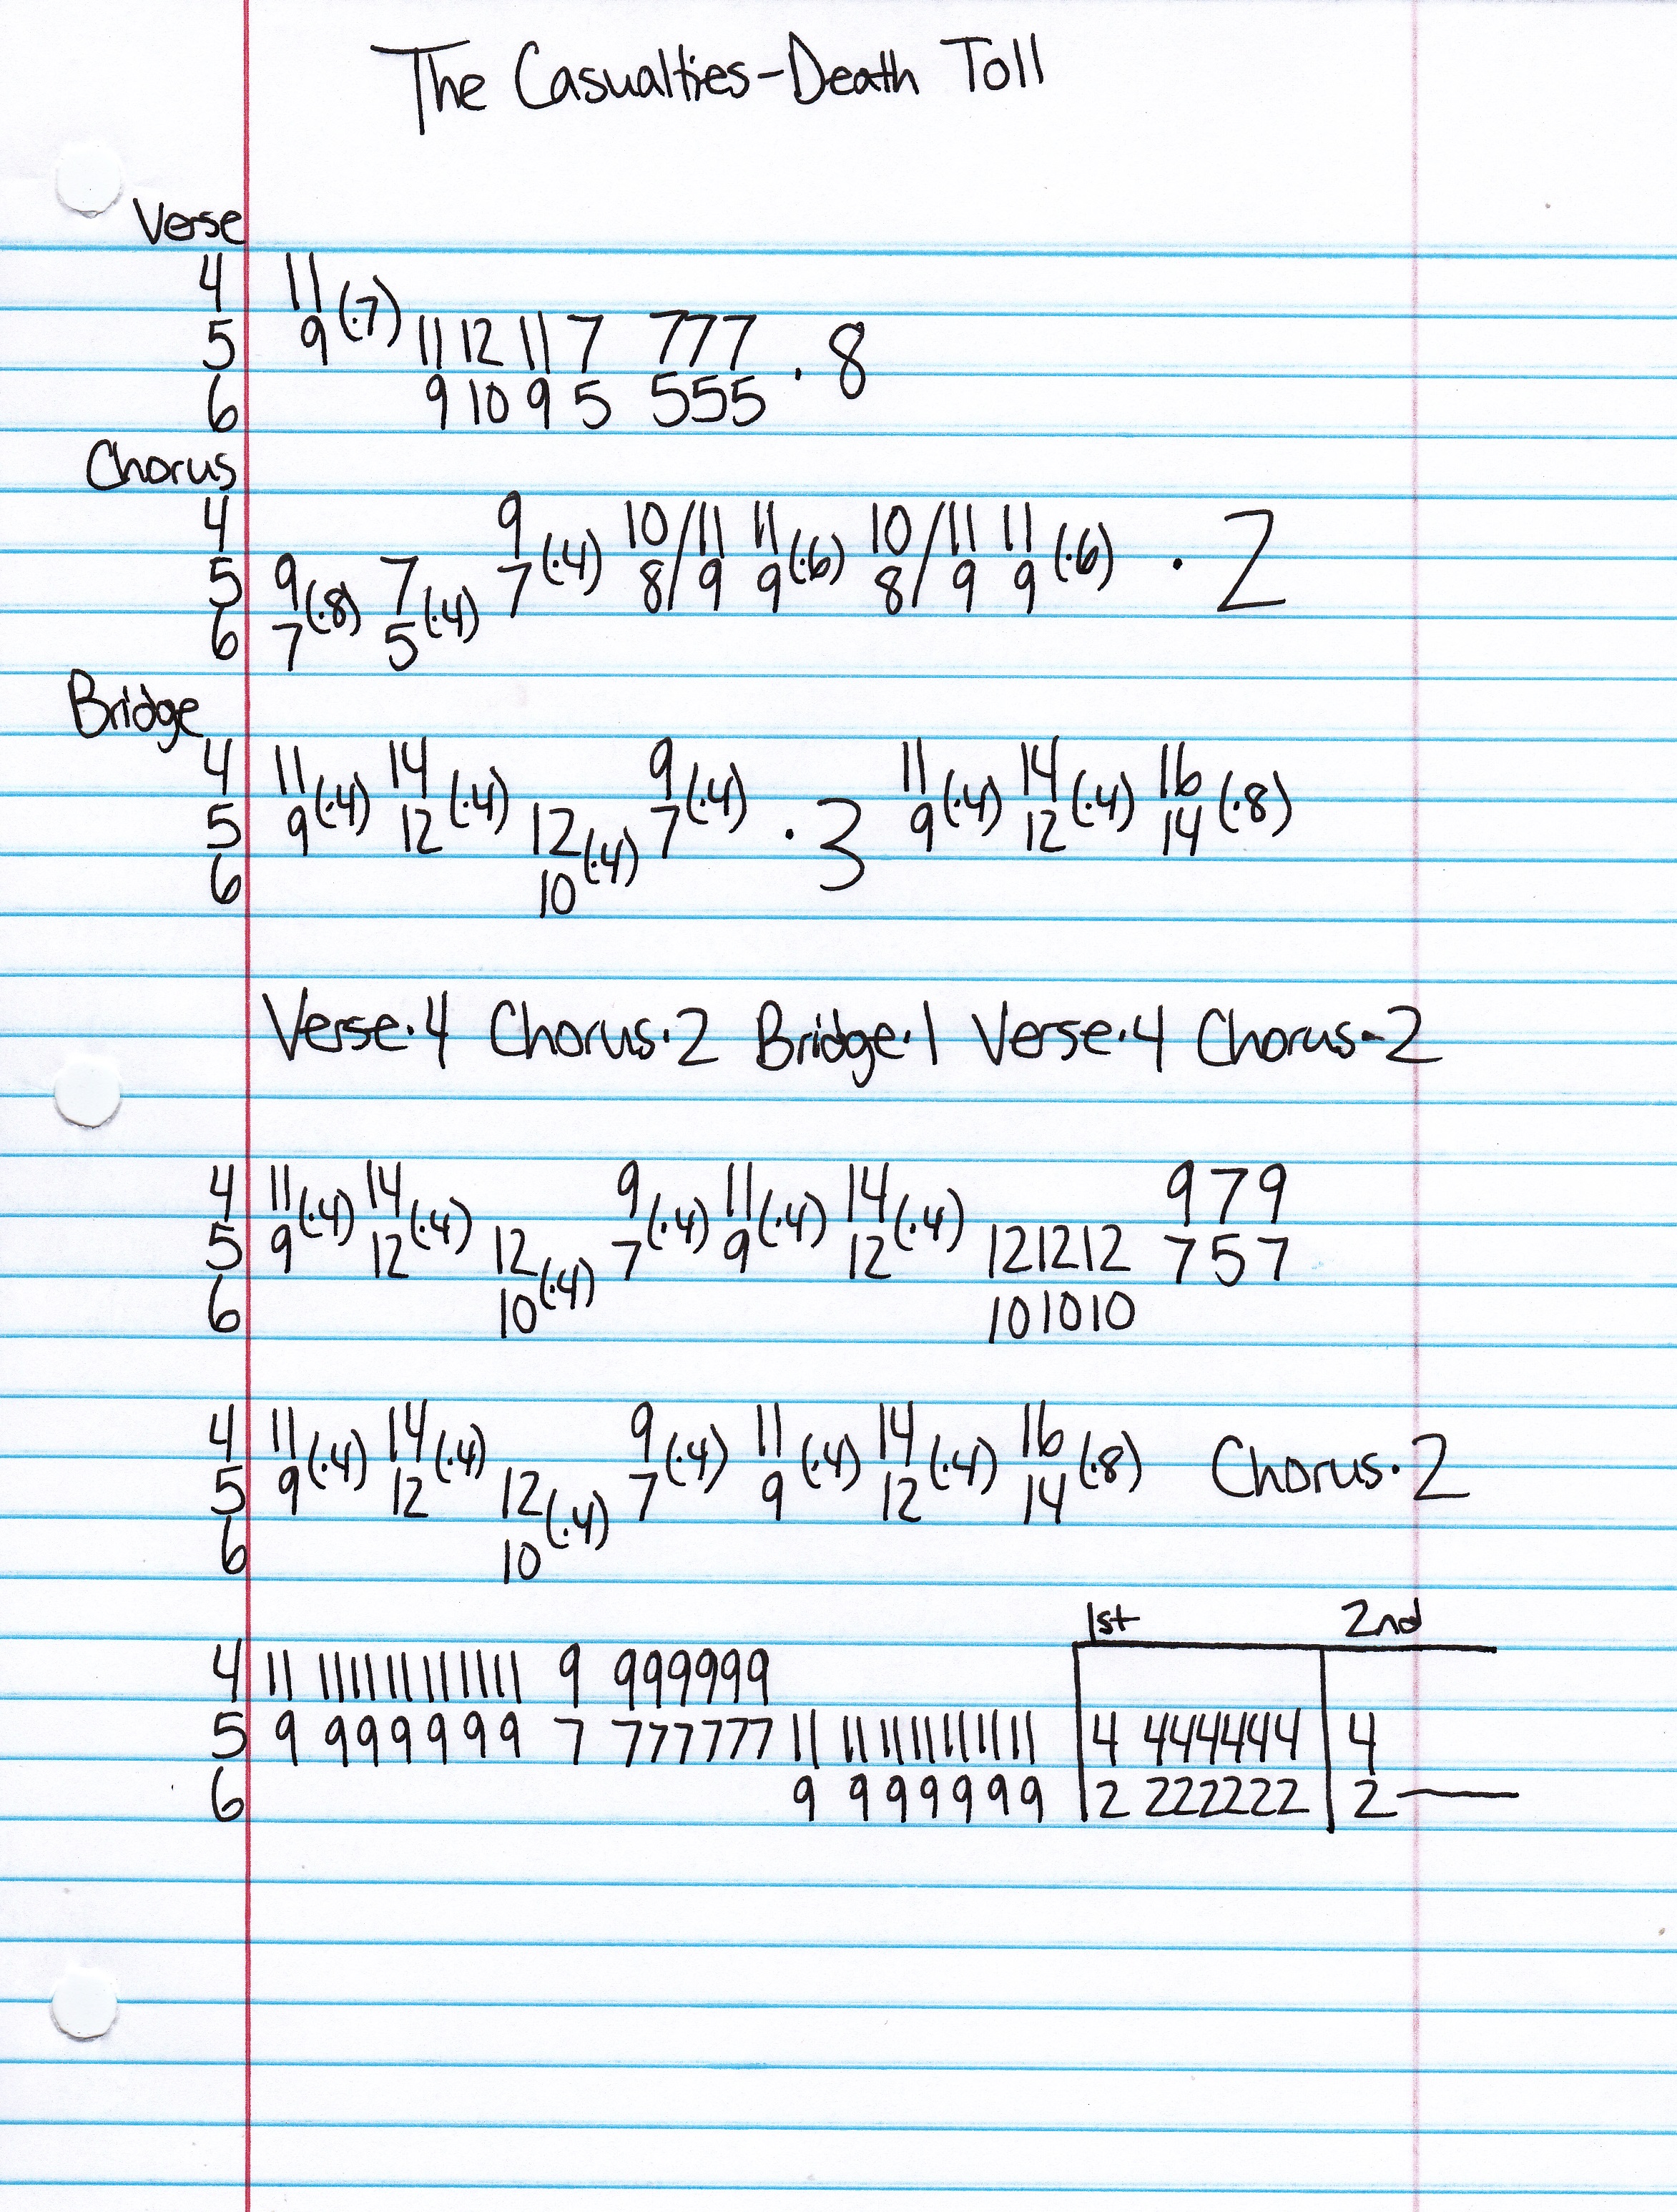 The Casualties-Death Toll
Verse
4 11
5 9 (·7) 11 12 11 7 777 · 8
6 9 10 9 5 555
Chorus
4 9 10/11 11 10/11 11
5 9 (·8) 7 (·4) 7 (·4) 8/9 9 (·6) 8/9 9 (·6) · 2
6 7 5
Bridge
4 11 14 9 11 14 16
5 9 (·4) 12 (·4) 12 (·4) 7 (·4) · 3 9 (·4) 12 (·4) 14 (·8)
6 10
Verse·4 Chorus·2 Bridge·1 Verse·4 Chorus-2
4 11 14 9 11 14 9 7 9
5 9 (·4) 12 (·4) 12 (·4) 7 (·4) 9 (·4) 12 (·4) 12 12 12 7 5 7
6 10 10 10 10
4 11 14 9 11 14 16
5 9 (·4) 12 (·4) 12 (·4) 7 (·4) 9 (·4) 12 (·4) 14 (·8) Chorus·2
6 10
1st 2nd
4 11 11 11 11 11 11 11 9 999999
5 9 9 9 9 9 9 9 7 777777 11 11 11 11 11 11 11 4 444444 4
6 9 9 9 9 9 9 9 2 222222 2